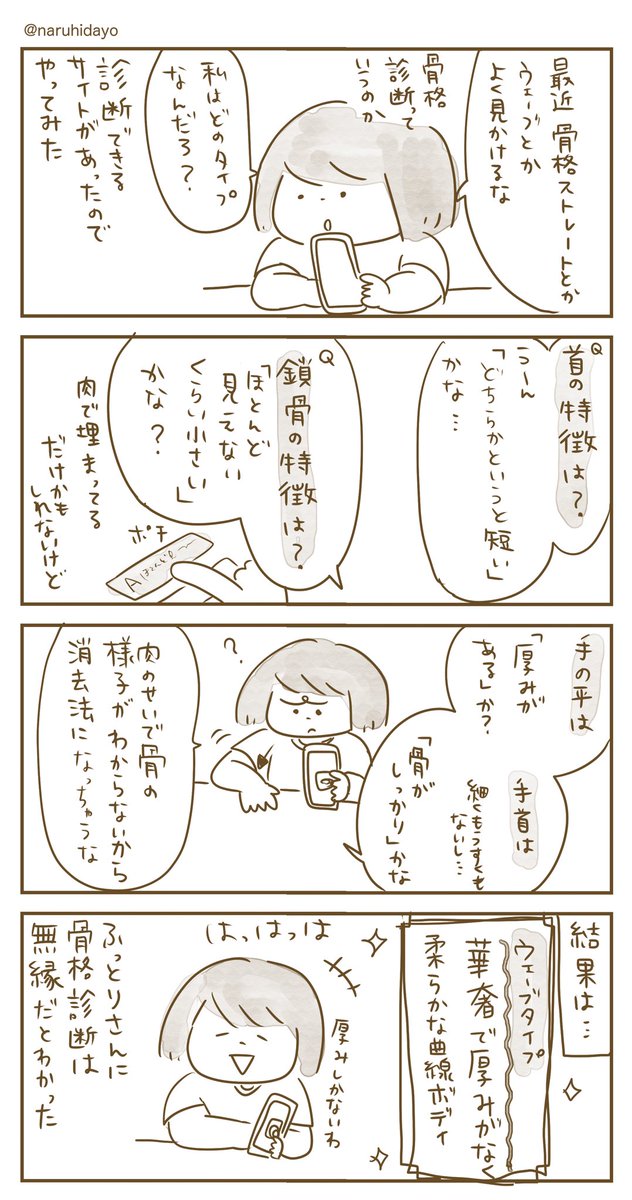 @naruhidayo
最近 骨格ストレートとか
ウェーブとか
よく見かけるな
骨格
診断って
いうのか
私はどのタイプ
なんだろ？
診断できる
サイトがあったので
やってみた
Q
首の特徴は？
うーん
「どちらかというと短い」
かな…
Q
鎖骨の特徴は？
「ほとんど
見えない
くらい小さい」
かな？
ポチ
肉で埋まってる
だけかも
しれないけど
手の平は
「厚みが
ある」か？
手首は
細くもうすくも
ないし…
「骨が
しっかり」かな
？
肉のせいで骨の
様子がわからないから
消去法になっちゃうな
結果は…
ウェーブタイプ
華奢で厚みがなく
柔らかな曲線ボディ
はっはっは
厚みしかないわ
ふっとりさんに
骨格診断は
無縁だとわかった